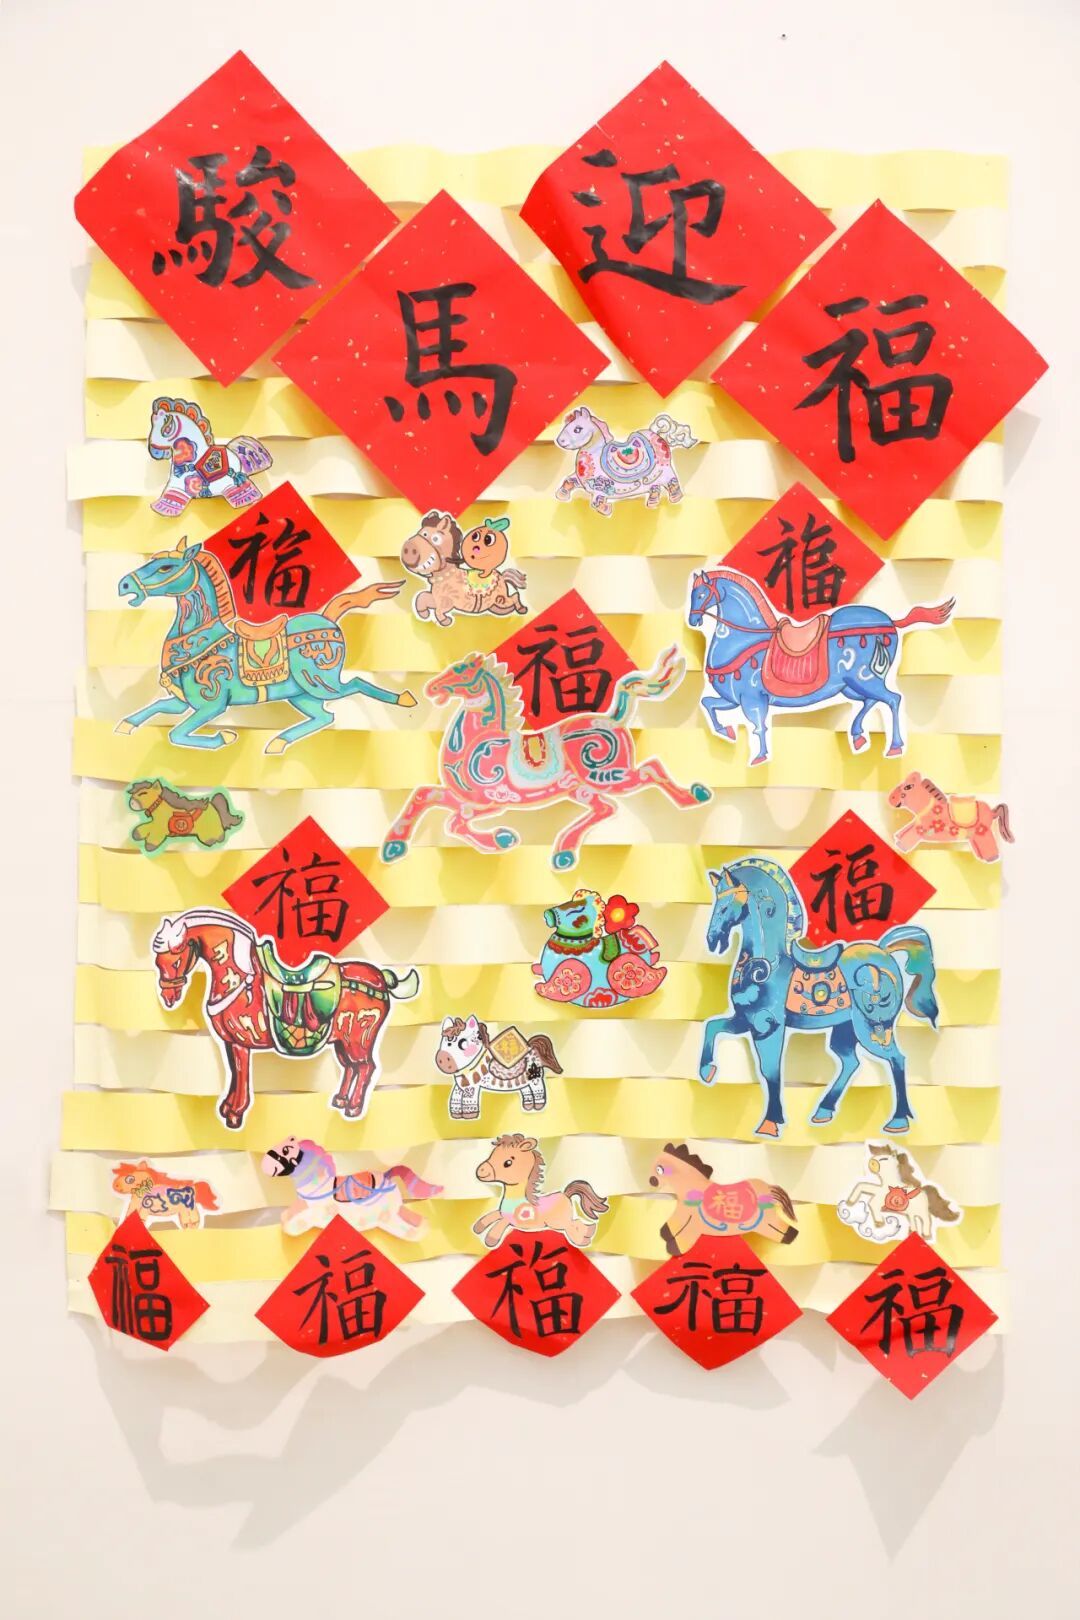 駿馬迎福
福
福
福
福
福
福
福
福
福
福
福
福